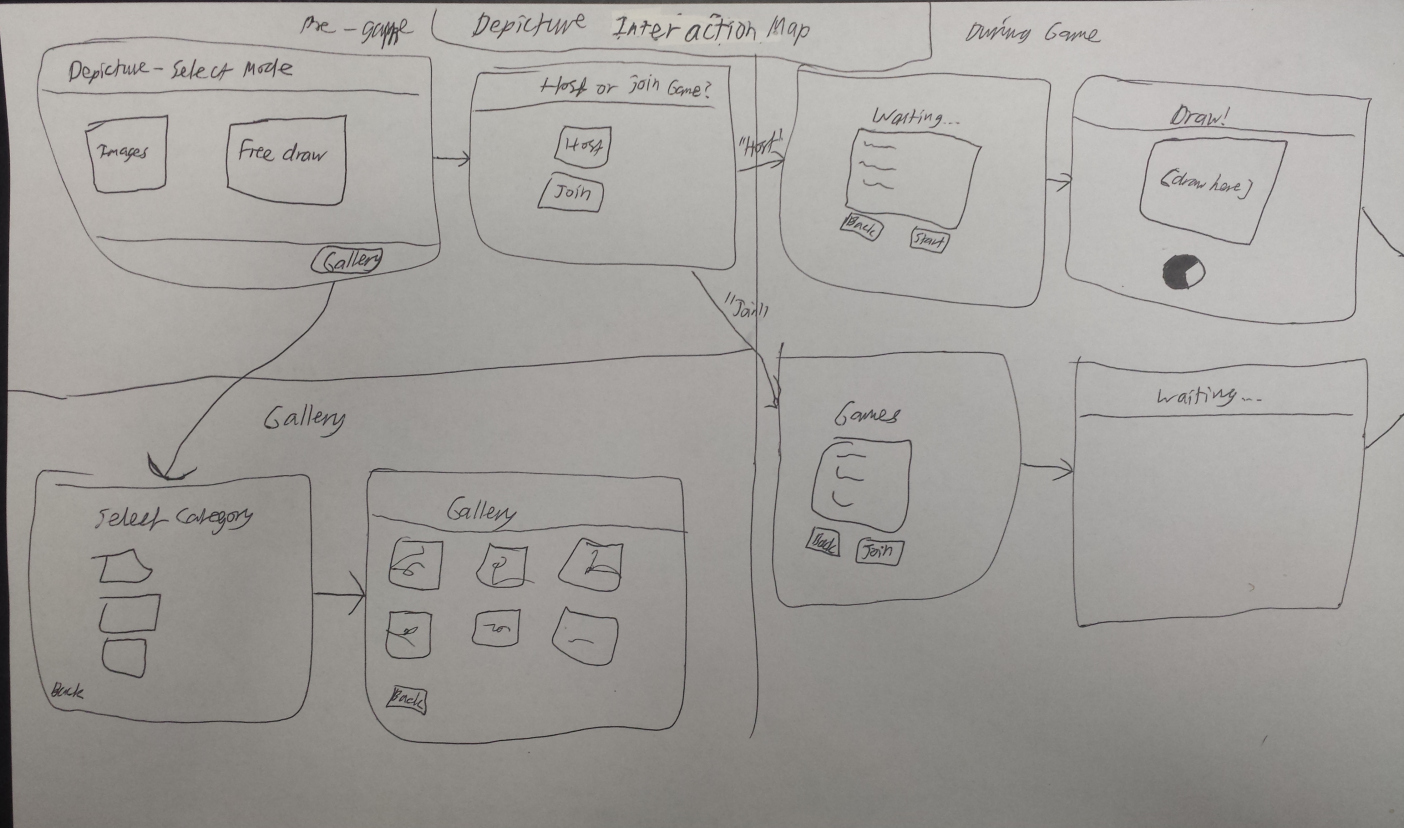 Pre-game
Depicture Interaction Map
During Game
Depicture - Select Mode
Images
Free draw
Gallery
Host or Join Game?
Host
Join
"Host"
"Join"
Waiting...
Back
Start
Draw!
[draw here]
Games
Back
Join
Waiting...
Gallery
Select Category
Back
Gallery
Back